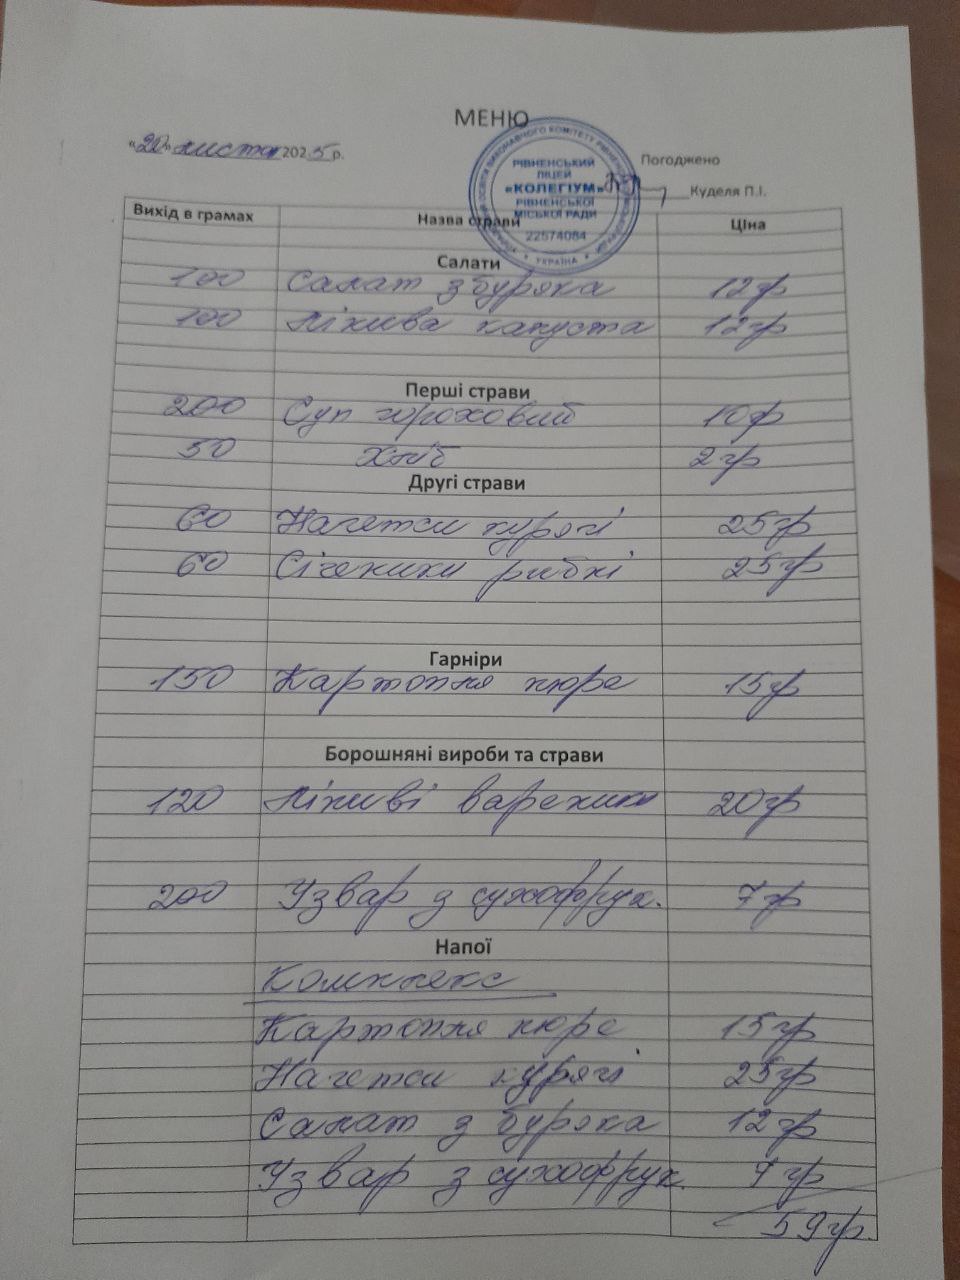 МЕНЮ
«20» листоп 2025 р.
Погоджено
Куделя П.І.
РІВНЕНСЬКИЙ
ЛІЦЕЙ
«КОЛЕГІУМ»
РІВНЕНСЬКОЇ
МІСЬКОЇ РАДИ
22574084
УКРАЇНА
Вихід в грамах Назва страви Ціна
Салати
100 Салат з буряка 12гр
100 Ніжива капуста 12гр
Перші страви
200 Суп гороховий 10гр
50 Хліб 2гр
Другі страви
60 Нагетси курячі 25гр
60 Січеники рибні 25гр
Гарніри
150 Картопля пюре 15гр
Борошняні вироби та страви
120 Ліниві вареники 20гр
200 Узвар з сухофрук. 7гр
Напої
Комплекс
Картопля пюре 15гр
Нагетси курячі 25гр
Салат з буряка 12гр
Узвар з сухофрук. 7гр
59гр.